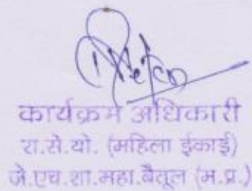 कार्यक्रम अधिकारी
रा.से.यो. (महिला ईकाई)
जे.एच.शा.महा.बैतूल (म.प्र.)